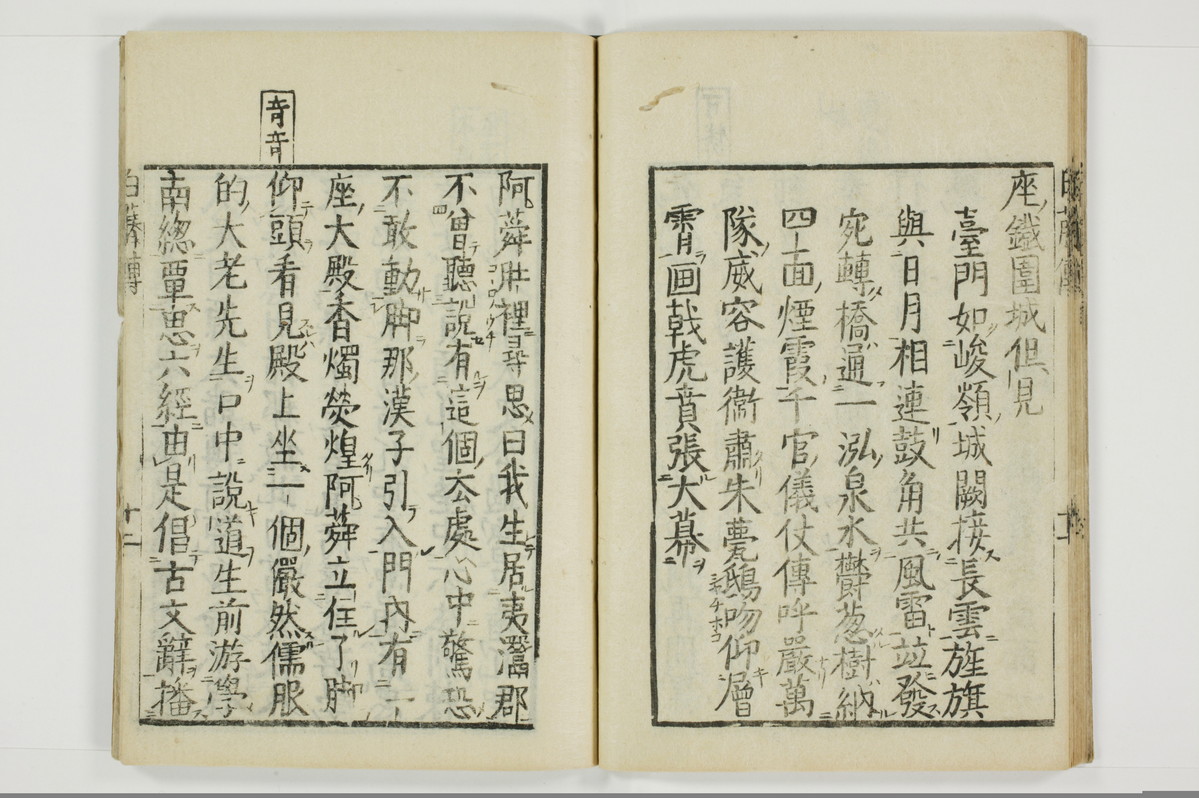 座鐵圍城但見
臺門如峻嶺城闕接長雲旌旗
與日月相連鼓角共風雷竝發
宛轉橋通一泓泉水鬱葱樹納
四面煙霞千官儀仗傳呼嚴萬
隊威容護衞肅朱甍鴟吻仰層
霄画戟虎賁張大幕
十二
阿蕣肚裡尋思曰我生居夷灊郡
不曾聽説有這個厺處心中驚恐
不敢動脚那漢子引入門内有一
座大殿香燭熒煌阿蕣立住了脚
仰頭看見殿上坐一個儼然儒服
的大老先生口中説道生前游學
南總覃思六經由是倡古文辭播
奇奇
十二